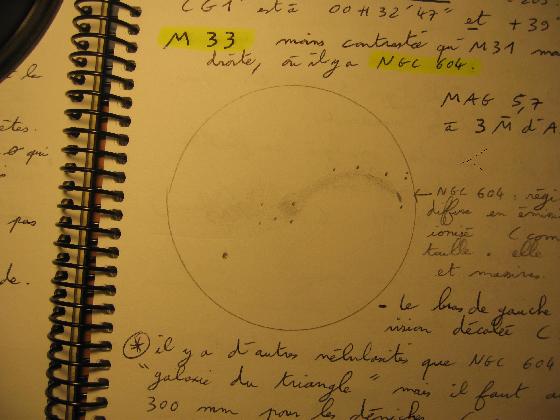 CG1 est à 00H 32' 47" et +39
M 33 moins contrasté qu'M31 mai
droite, où il y a NGC 604.
MAG 5,7
à 3 M d'A
NGC 604 : régi
diffuse en émiss
ionisé (com
taille. elle
et massives.
- Le bras de gauche
vision décalée (
* il y a d'autres nébulosités que NGC 604
"galaxie du triangle" mais il faut a
300 mm pour les dénicher (
e le
êtes.
o qui
pas
de.